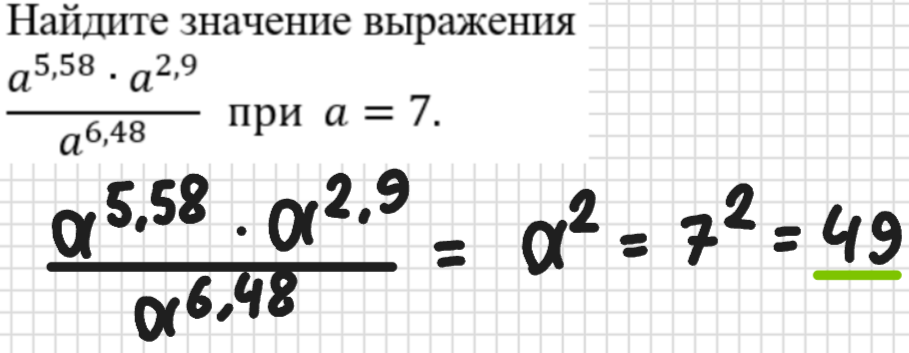 Найдите значение выражения
a^5,58 · a^2,9
a^6,48 при a = 7.
a^5,58 · a^2,9
a^6,48 = a^2 = 7^2 = 49